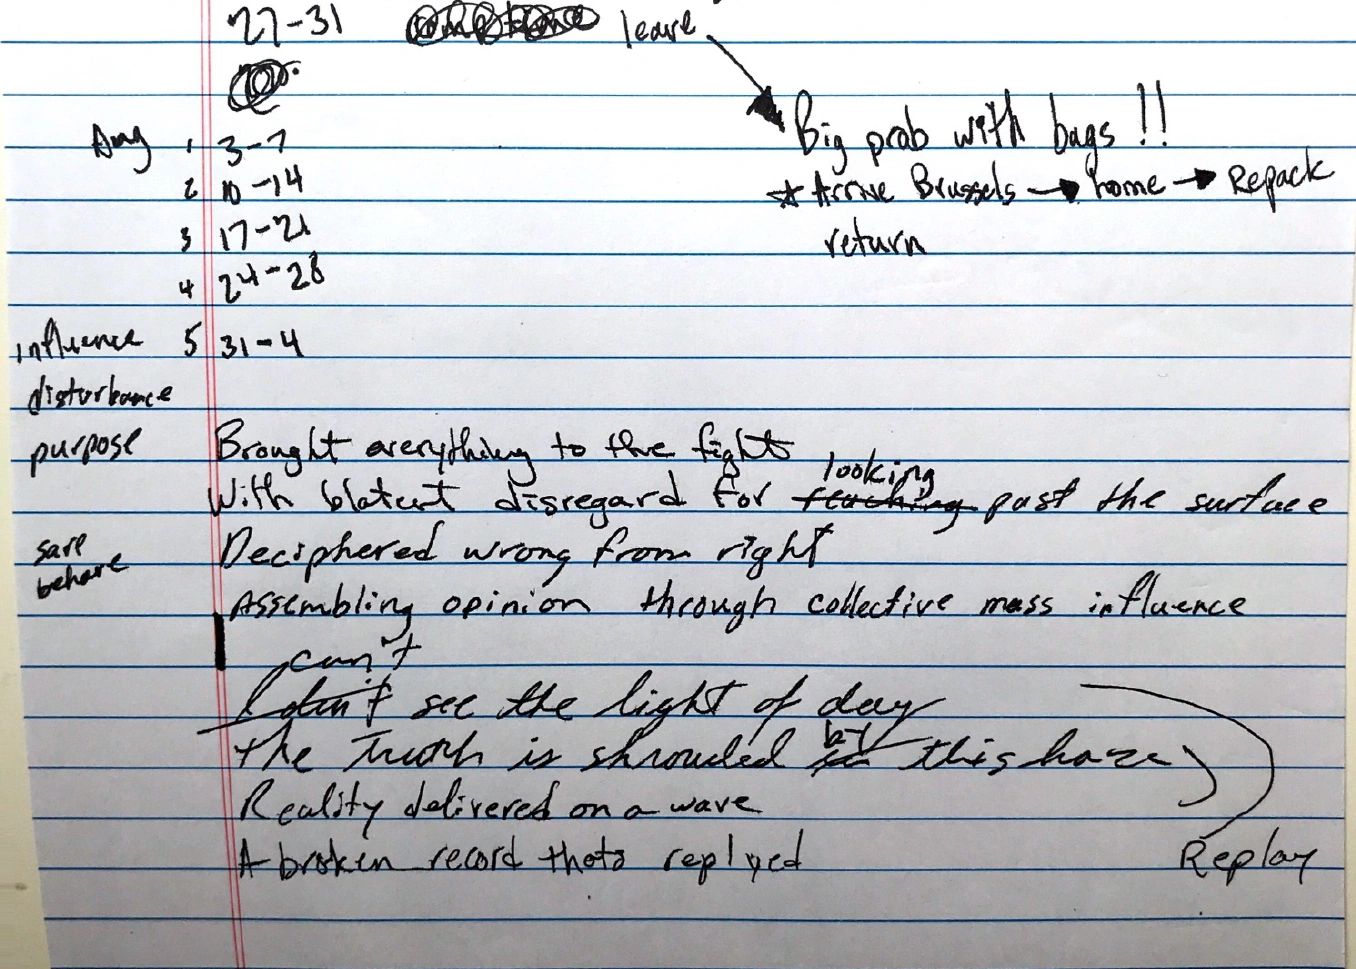 27-31 leave
Big prob with bags !!
Aug 1 3-7
2 10-14
* Arrive Brussels → home → Repack
return
3 17-21
4 24-28
influence 5 31-4
disturbance
purpose Brought everything to the fight
looking
With blatent disregard for past the surface
Deciphered wrong from right
behave
Assembling opinion through collective mass influence
can't
I don't see the light of day
by
the Truth is shrouded this haze
Reality delivered on a wave
A broken record thats replyed Replay